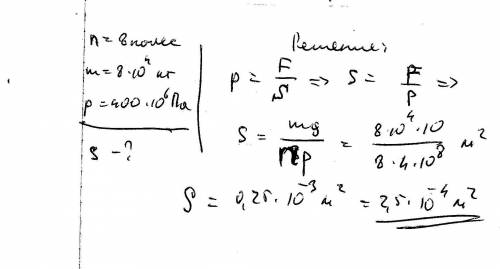 n = 8 полес
m = 8·10⁴ кг
p = 400·10⁶ Па
S - ?
Решение:
p = F/S => S = F/p =>
S = mg/np = 8·10⁴·10/8·4·10⁸ м²
S = 0,25·10⁻³ м² = 2,5·10⁻⁴ м²